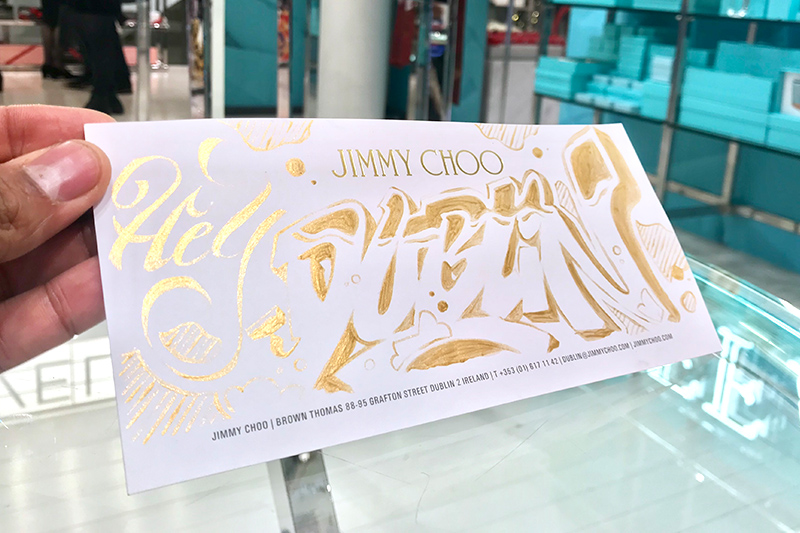 JIMMY CHOO
Hey
DUBLIN!
JIMMY CHOO | BROWN THOMAS 88-95 GRAFTON STREET DUBLIN 2 IRELAND | T +363 (01) 617 11 42 | DUBLIN@JIMMYCHOO.COM | JIMMYCHOO.COM